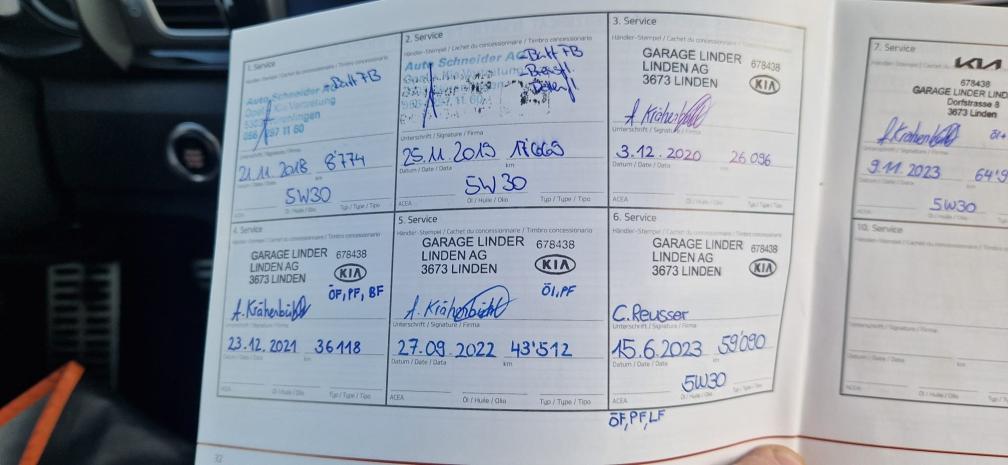 1. Service
Händler-Stempel / Cachet du concessionnaire / Timbro concessionario
Auto Schneider AG Batt 7B
Opel, Kia Vertretung
97 11 60
Unterschrift / Signature / Firma
21.11.2018 8'774
Datum / Date / Data km
5W30
ACEA Öl / Huile / Olio Typ / Type / Tipo
2. Service
Händler-Stempel / Cachet du concessionnaire / Timbro concessionario
Auto Schneider AG Batt 7B
97 11 60
Unterschrift / Signature / Firma
25.11.2019 17'669
Datum / Date / Data km
5W30
ACEA Öl / Huile / Olio Typ / Type / Tipo
3. Service
Händler-Stempel / Cachet du concessionnaire / Timbro concessionario
GARAGE LINDER 678438
LINDEN AG KIA
3673 LINDEN
A. Krähenbühl
Unterschrift / Signature / Firma
3.12.2020 26 096
Datum / Date / Data km
ACEA Öl / Huile / Olio Typ / Type / Tipo
4. Service
Händler-Stempel / Cachet du concessionnaire / Timbro concessionario
GARAGE LINDER 678438
LINDEN AG KIA
3673 LINDEN
ÖF, PF, BF
A. Krähenbühl
Unterschrift / Signature / Firma
23.12.2021 36118
Datum / Date / Data km
ACEA Öl / Huile / Olio Typ / Type / Tipo
5. Service
Händler-Stempel / Cachet du concessionnaire / Timbro concessionario
GARAGE LINDER 678438
LINDEN AG KIA
3673 LINDEN
Öl, PF
A. Krähenbühl
Unterschrift / Signature / Firma
27.09.2022 43'512
Datum / Date / Data km
ACEA Öl / Huile / Olio Typ / Type / Tipo
6. Service
Händler-Stempel / Cachet du concessionnaire / Timbro concessionario
GARAGE LINDER 678438
LINDEN AG KIA
3673 LINDEN
C. Reusser
Unterschrift / Signature / Firma
15.6.2023 59'090
Datum / Date / Data km
5W30
ACEA Öl / Huile / Olio Typ / Type / Tipo
ÖF, PF, LF
32
7. Service
KIA
678438
GARAGE LINDER LIND
Dorfstrasse 8
3673 Linden
A. Krähenbühl
Unterschrift / Signature / Firma
9.11.2023 64'9
Datum / Date / Data
5W30
ACEA Öl / Huile / Olio
10. Service
Händler-Stempel / Cachet du concessionnaire
Unterschrift / Signature / Firma
Datum / Date / Data
ACEA Öl / Huile / Olio